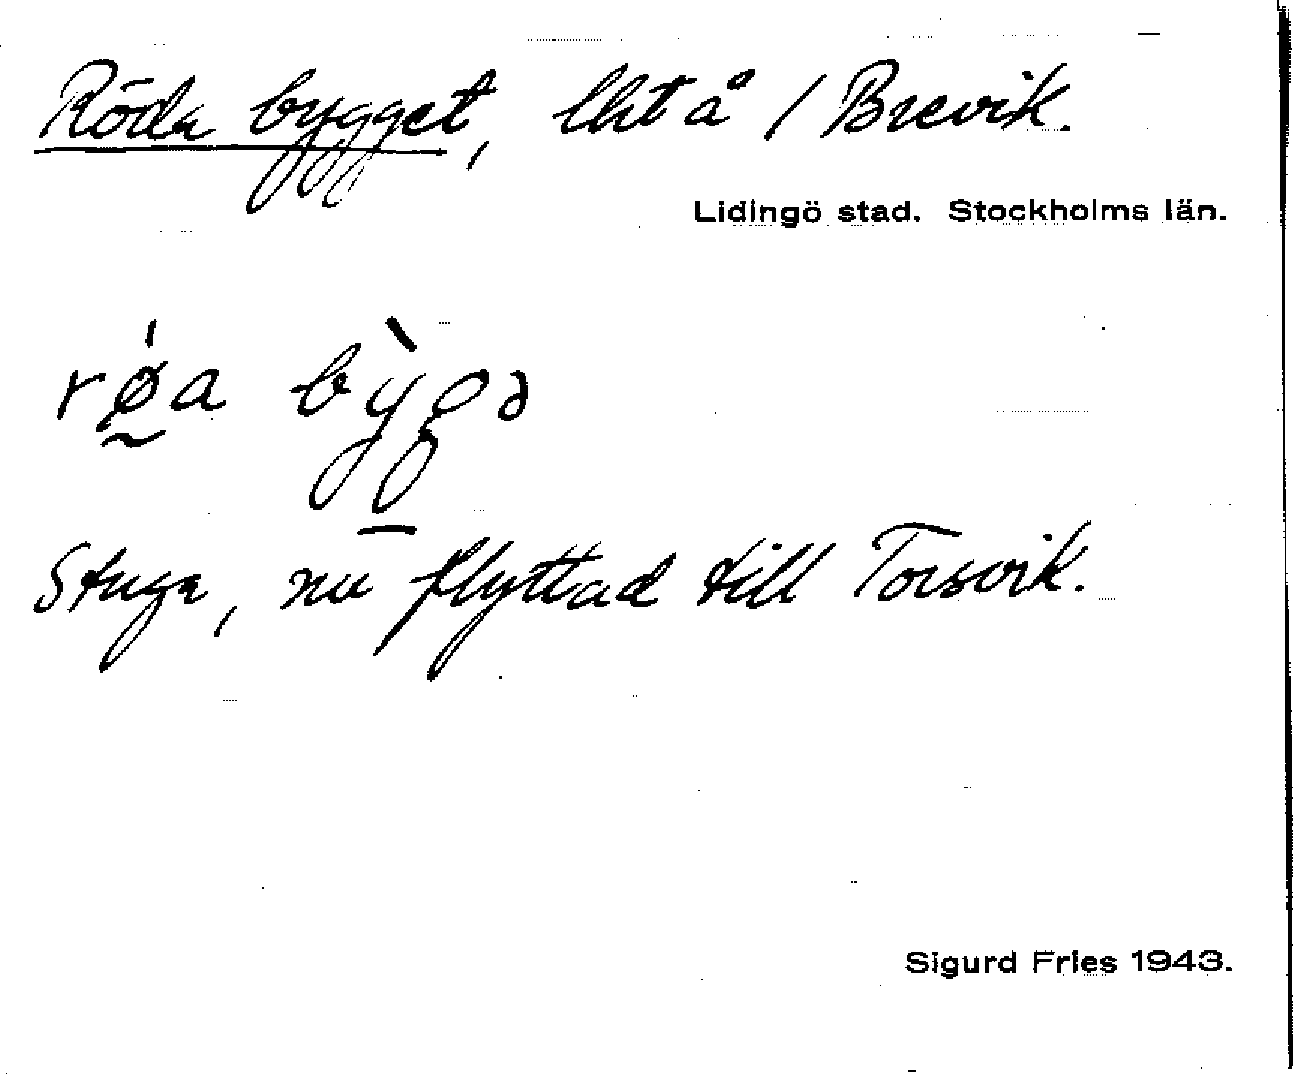 Röda bygget, lht å / Brevik.
Lidingö stad. Stockholms län.
rǿ̰a bỳg̱ə
Stuga, nu flyttad till Torsvik.
Sigurd Fries 1943.